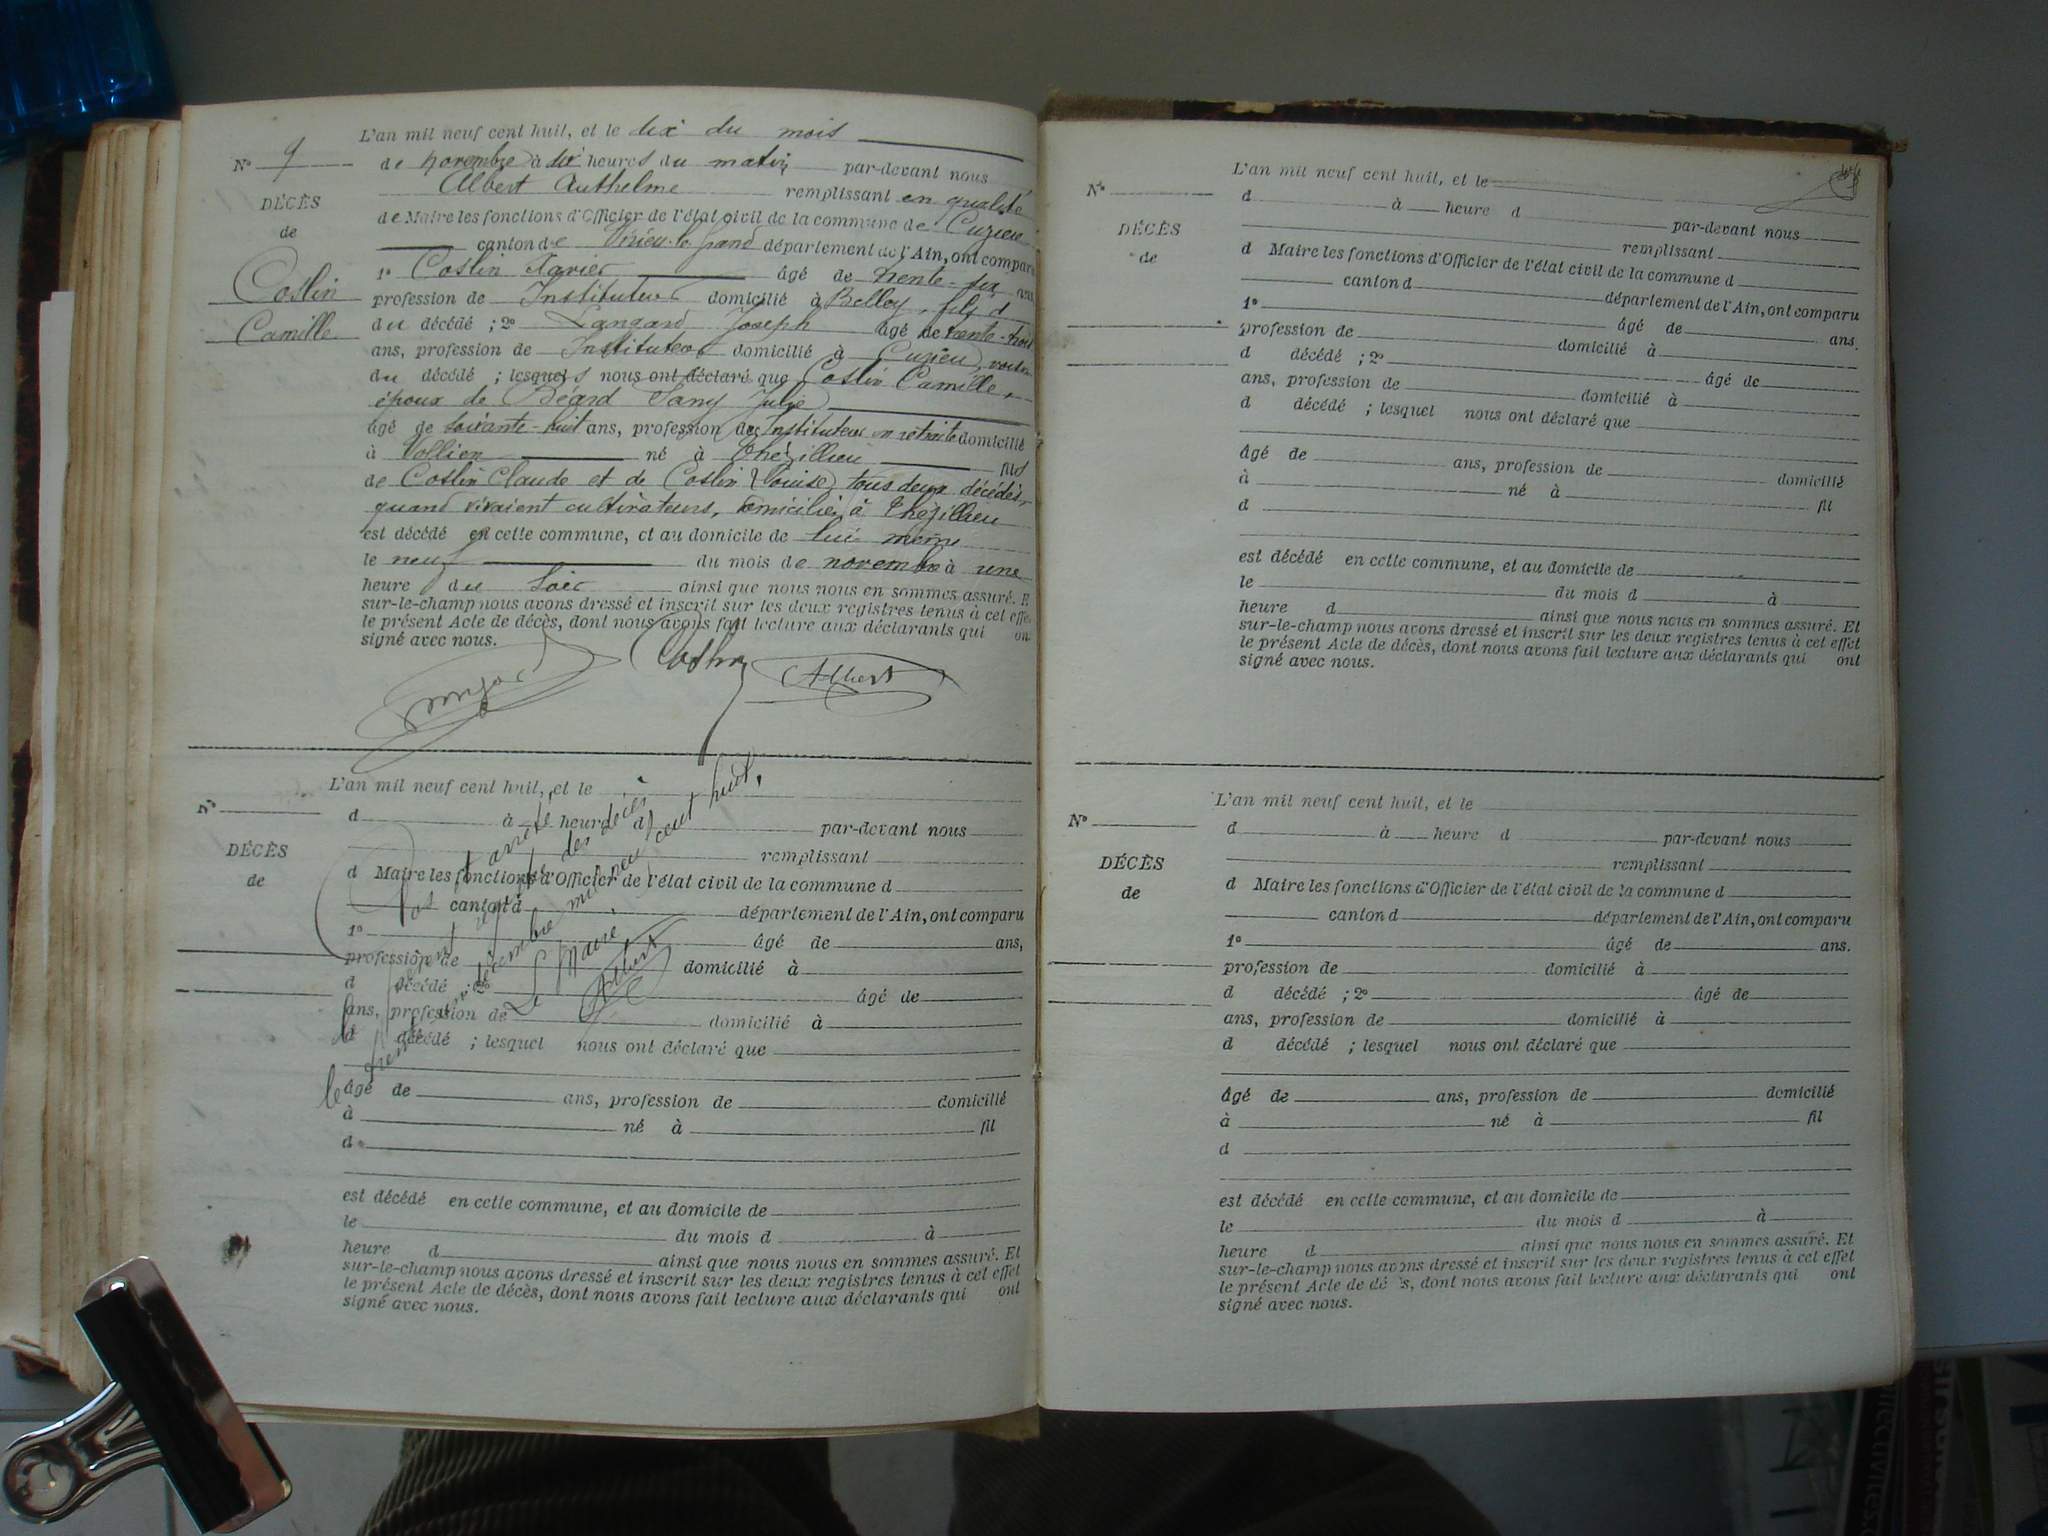 L'an mil neuf cent huit, et le dix du mois
N° 9
de novembre à dix heures du matin par-devant nous
Albert Anthelme remplissant en qualité
DÉCÈS
de Maire les fonctions d'Officier de l'état civil de la commune de Cuzieu
de
canton de Virieu-le-Grand département de l'Ain, ont comparu
1° Coslin Xavier âgé de trente-six ans
Coslin
profession de Instituteur domicilié à Belley, fils d
Camille
du décédé ; 2° Joseph âgé de trente-trois
ans, profession de Instituteur domicilié à Cuzieu, voisin
du décédé ; lesquels nous ont déclaré que Coslin Camille,
époux de Béard Fany Julie
âgé de soixante-huit ans, profession de Instituteur en retraite domicilié
à Vollien né à Thézillieu fils
de Coslin Claude et de Coslin Louise, tous deux décédés,
quand vivaient cultivateurs, domiciliés à Thézillieu
est décédé en cette commune, et au domicile de lui même
le neuf du mois de novembre à une
heure du soir ainsi que nous nous en sommes assuré. E
sur-le-champ nous avons dressé et inscrit sur les deux registres tenus à cet effe
le présent Acte de décès, dont nous avons fait lecture aux déclarants qui on
signé avec nous.
Coslin
Albert
L'an mil neuf cent huit, et le
N°
d à heure d par-devant nous
DÉCÈS
remplissant
de
d Maire les fonctions d'Officier de l'état civil de la commune d
canton d département de l'Ain, ont comparu
1° âgé de ans,
profession de domicilié à
d décédé ; 2° âgé de
ans, profession de domicilié à
d décédé ; lesquel nous ont déclaré que
âgé de ans, profession de domicilié
à né à fil
d
est décédé en cette commune, et au domicile de
le du mois d à
heure d ainsi que nous nous en sommes assuré. Et
sur-le-champ nous avons dressé et inscrit sur les deux registres tenus à cet effet
le présent Acte de décès, dont nous avons fait lecture aux déclarants qui ont
signé avec nous.
Clos et arrêté
le présent registre des décès
le trente et un décembre mil neuf cent huit.
Le Maire,
Albert
L'an mil neuf cent huit, et le
N°
d à heure d par-devant nous
DÉCÈS
remplissant
de
d Maire les fonctions d'Officier de l'état civil de la commune d
canton d département de l'Ain, ont comparu
1° âgé de ans.
profession de domicilié à
d décédé ; 2° âgé de
ans, profession de domicilié à
d décédé ; lesquel nous ont déclaré que
âgé de ans, profession de domicilié
à né à fil
d
est décédé en cette commune, et au domicile de
le du mois d à
heure d ainsi que nous nous en sommes assuré. Et
sur-le-champ nous avons dressé et inscrit sur les deux registres tenus à cet effet
le présent Acte de décès, dont nous avons fait lecture aux déclarants qui ont
signé avec nous.
L'an mil neuf cent huit, et le
N°
d à heure d par-devant nous
DÉCÈS
remplissant
de
d Maire les fonctions d'Officier de l'état civil de la commune d
canton d département de l'Ain, ont comparu
1° âgé de ans.
profession de domicilié à
d décédé ; 2° âgé de
ans, profession de domicilié à
d décédé ; lesquel nous ont déclaré que
âgé de ans, profession de domicilié
à né à fil
d
est décédé en cette commune, et au domicile de
le du mois d à
heure d ainsi que nous nous en sommes assuré. Et
sur-le-champ nous avons dressé et inscrit sur les deux registres tenus à cet effet
le présent Acte de dé s, dont nous avons fait lecture aux déclarants qui ont
signé avec nous.